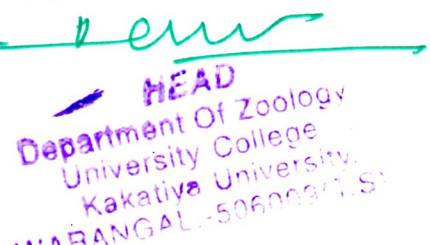 HEAD
Department Of Zoology
University College
Kakatiya University,
WARANGAL.-506009(T.S)